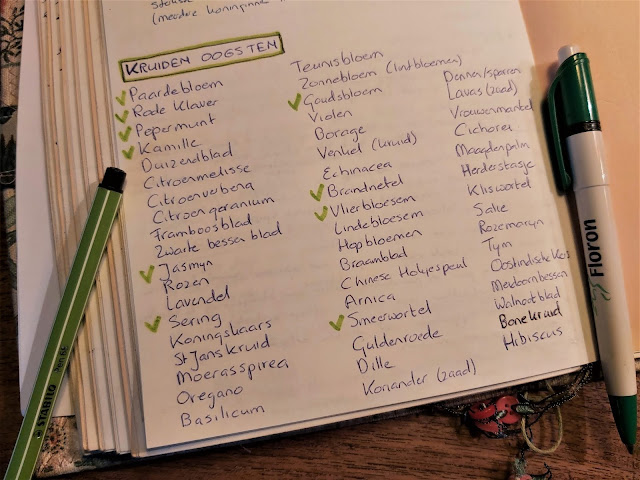 (meerdere koninginne
KRUIDEN OOGSTEN
Paardebloem
Rode Klaver
Pepermunt
Kamille
Duizendblad
Citroenmelisse
Citroenverbena
Citroengeranium
Framboosblad
Zwarte bessen blad
Jasmijn
Rozen
Lavendel
Sering
Koningskaars
St Janskruid
Moerasspirea
Oregano
Basilicum
Teunisbloem
Zonnebloem (lintbloemen)
Goudsbloem
Violen
Borage
Venkel (kruid)
Echinacea
Brandnetel
Vlierbloesem
Lindebloesem
Hopbloemen
Braamblad
Chinese Holyespeul
Arnica
Smeerwortel
Guldenroede
Dille
Koriander (zaad)
Dennen/sparren
Lavas (zaad)
Vrouwenmantel
Cichorei
Maagdenpalm
Herderstasje
Kliswortel
Salie
Rozemarijn
Tijm
Oostindische Kers
Meidoornbessen
Walnootblad
Bonekruid
Hibiscus
STABILO Pen 68
Floron